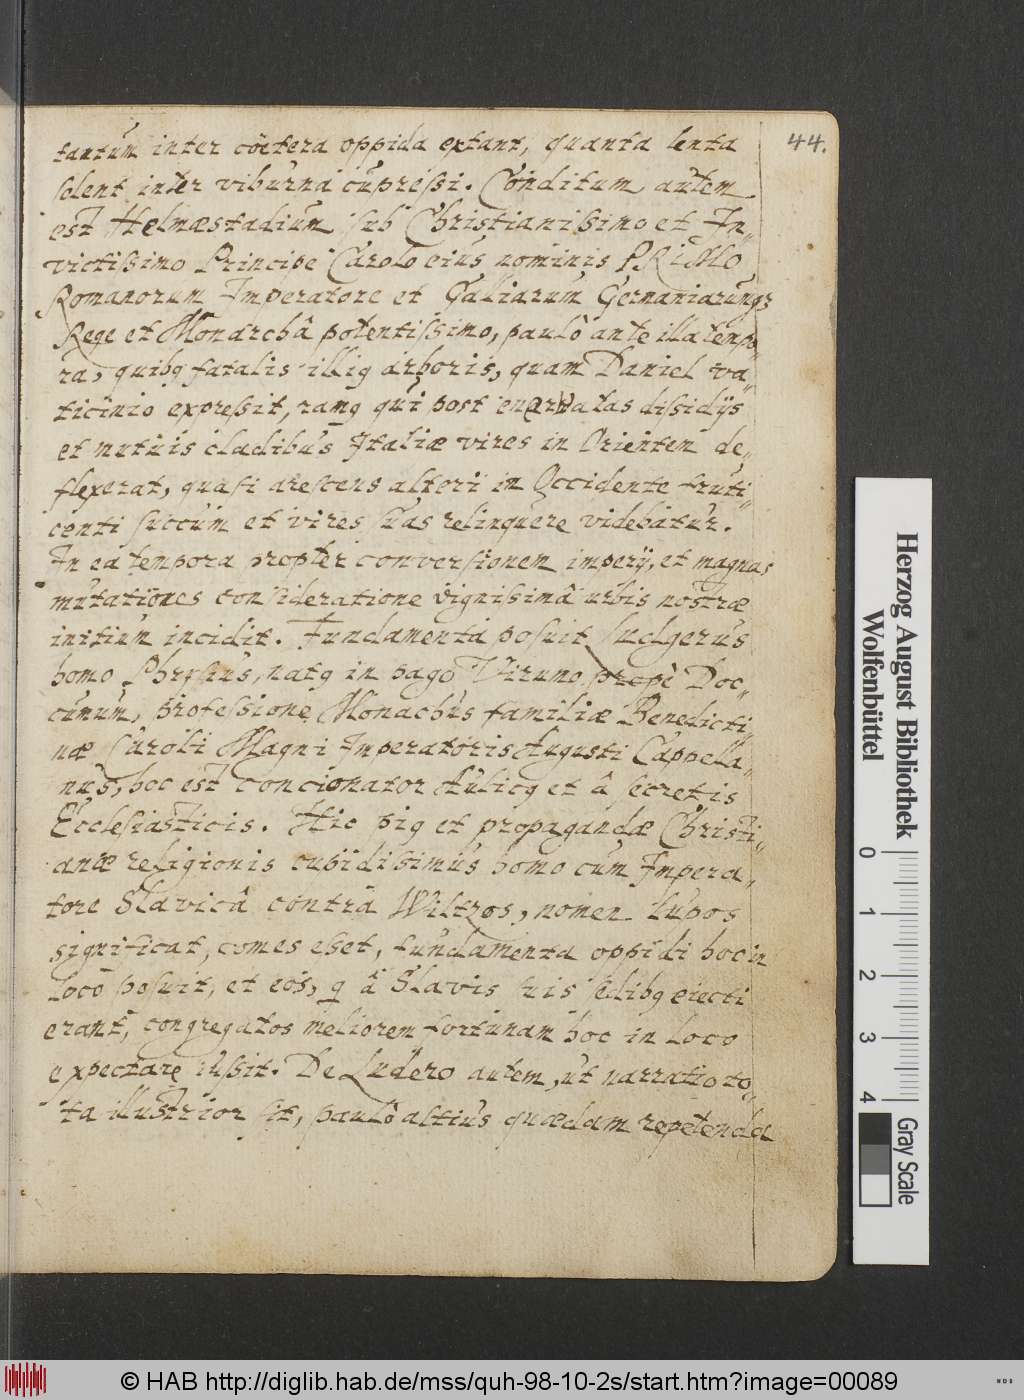 44.
tantum inter cœtera oppida extant, quanta lenta
solent inter viburna cupreſsi. Conditum autem
est Helmæstadium sub Christianissimo et In„
victiſsimo Principe Carolo eius nominis PRiMo
Romanorum Imperatore et Galliarum Germaniarumq3
Rege et Monarchâ potentiſsimo, paulò ante illa tempo„
ra, quibq fatalis illiq arboris, quam Daniel va„
ticinio expreſsit, ramq qui post enervatas diſsidijs
et mutuis cladibus Italiæ vires in Orientem de„
flexerat, quasi arescens alteri in Occidente fruti„
centi succum et vires suas relinquere videbatur.
In ea tempora propter conversionem imperij, et magnas
mutationes consideratione digniſsimâ urbis nostræ
initium incidit. Fundamenta posuit Ludgerus
homo Phrysius, natq in pago Viruno propè Doc„
cumum, profeſsione Monachus familiæ Benedicti„
næ Caroli Magni Imperatoris Augusti Cappella„
nus, hoc est concionator Aulicq et â secretis
Ecclesiasticis. Hic piq et propagandæ Christi„
anæ religionis cupidiſsimus homo cum Impera„
tore Slavicâ contra Wiltzos, nomen lupos
significat, comes eſset, fundamenta oppidi hoc in
loco posuit, et eos, q â Slavis suis sedibq eiecti
erant, congregatos meliorem fortunam hoc in loco
expectare iuſsit. De Ludero autem, ut narratio to„
ta illustrior sit, paulò altius quædam repetenda
Herzog August Bibliothek
Wolfenbüttel
0 1 2 3 4
Gray Scale
© HAB http://diglib.hab.de/mss/quh-98-10-2s/start.htm?image=00089